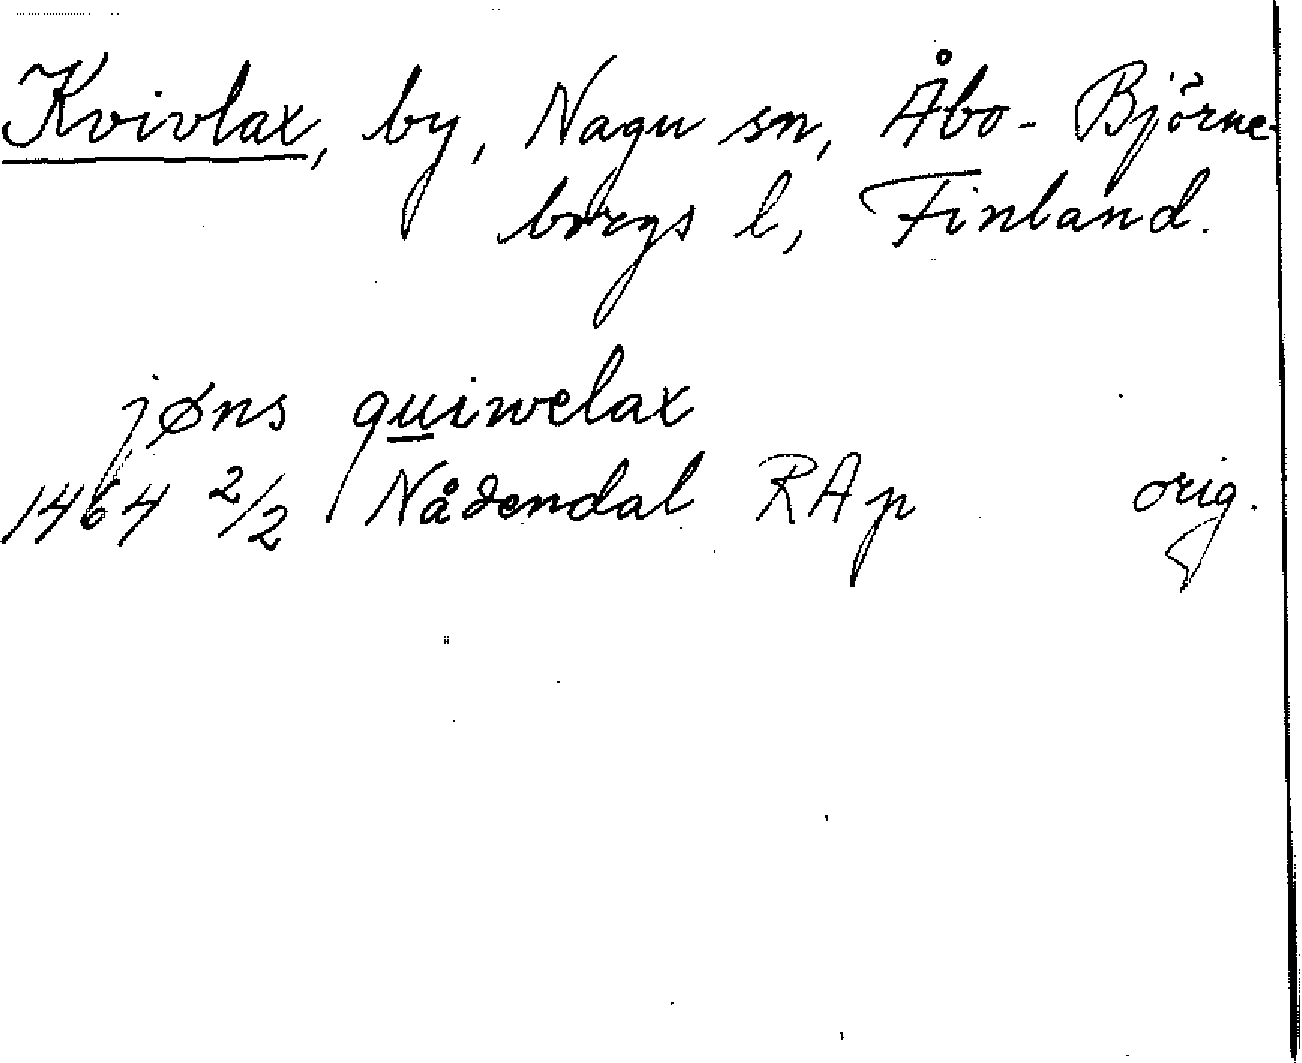 Kvivlax, by, Nagu sn, Åbo-Björne-
borgs l, Finland.
jøns quiwelax
1464 2/2 Nådendal RAp orig.